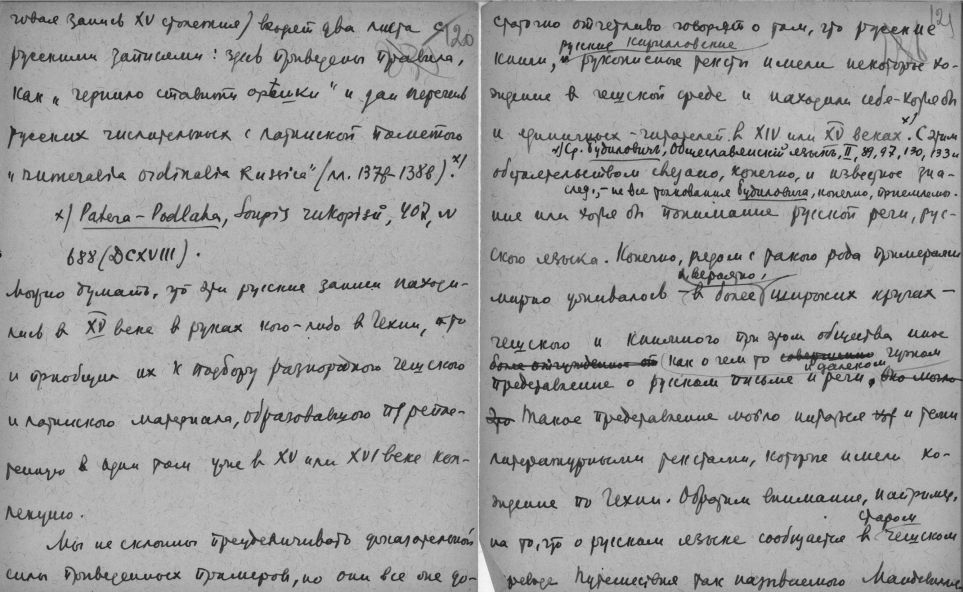 говая запись XV столетия) входят два листа с
русскими записями: здесь приведены правила,
как „чернило ставити орешки" и дан перечень
русских числительных с латинской пометою
„numeralia ordinalia Russica" (лл. 137б–138б).x)
x) Patera–Podlaha, Soupis rukopisů, 407, N
688 (DCXVIII).
Можно думать, что эти русские записи находи-
лись в XV веке в руках кого-либо в Чехии, кто
и приобщил их к подбору разнородного чешского
и латинского материала, образовавшего
в один том уже в XV или XVI веке кол-
лекцию.
Мы не склонны преувеличивать доказательной
силы приведенных примеров, но они все же до-
120
121
статочно отчетливо говорят о том, что русские
русские кирилловские
книги, рукописные тексты имели некоторое хо-
ждение в чешской среде и находили себе хотя бы
и единичных читателей в XIV или XV веках.x) С этим
x) Ср. Будиловичъ, Общеславянскій языкъ, II, 89, 97, 130, 133 и
обстоятельством связано, конечно, и известное зна-
след., – не все толкования Будиловича, конечно, приемлемы.
ние или хотя бы понимание русской речи, рус-
ского языка. Конечно, рядом с такого рода примерами
, вероятно,
мирно уживалось в более широких кругах
чешского и книжного при этом общества иное
как о чем то чужом
и далеком
представление о русском письме и речи.
Такое представление могло питаться и теми
литературными текстами, которые имели хо-
ждение по Чехии. Обратим внимание, например,
старом
на то, что о русском языке сообщается в чешском
переводе Путешествия так называемого Мандевилля